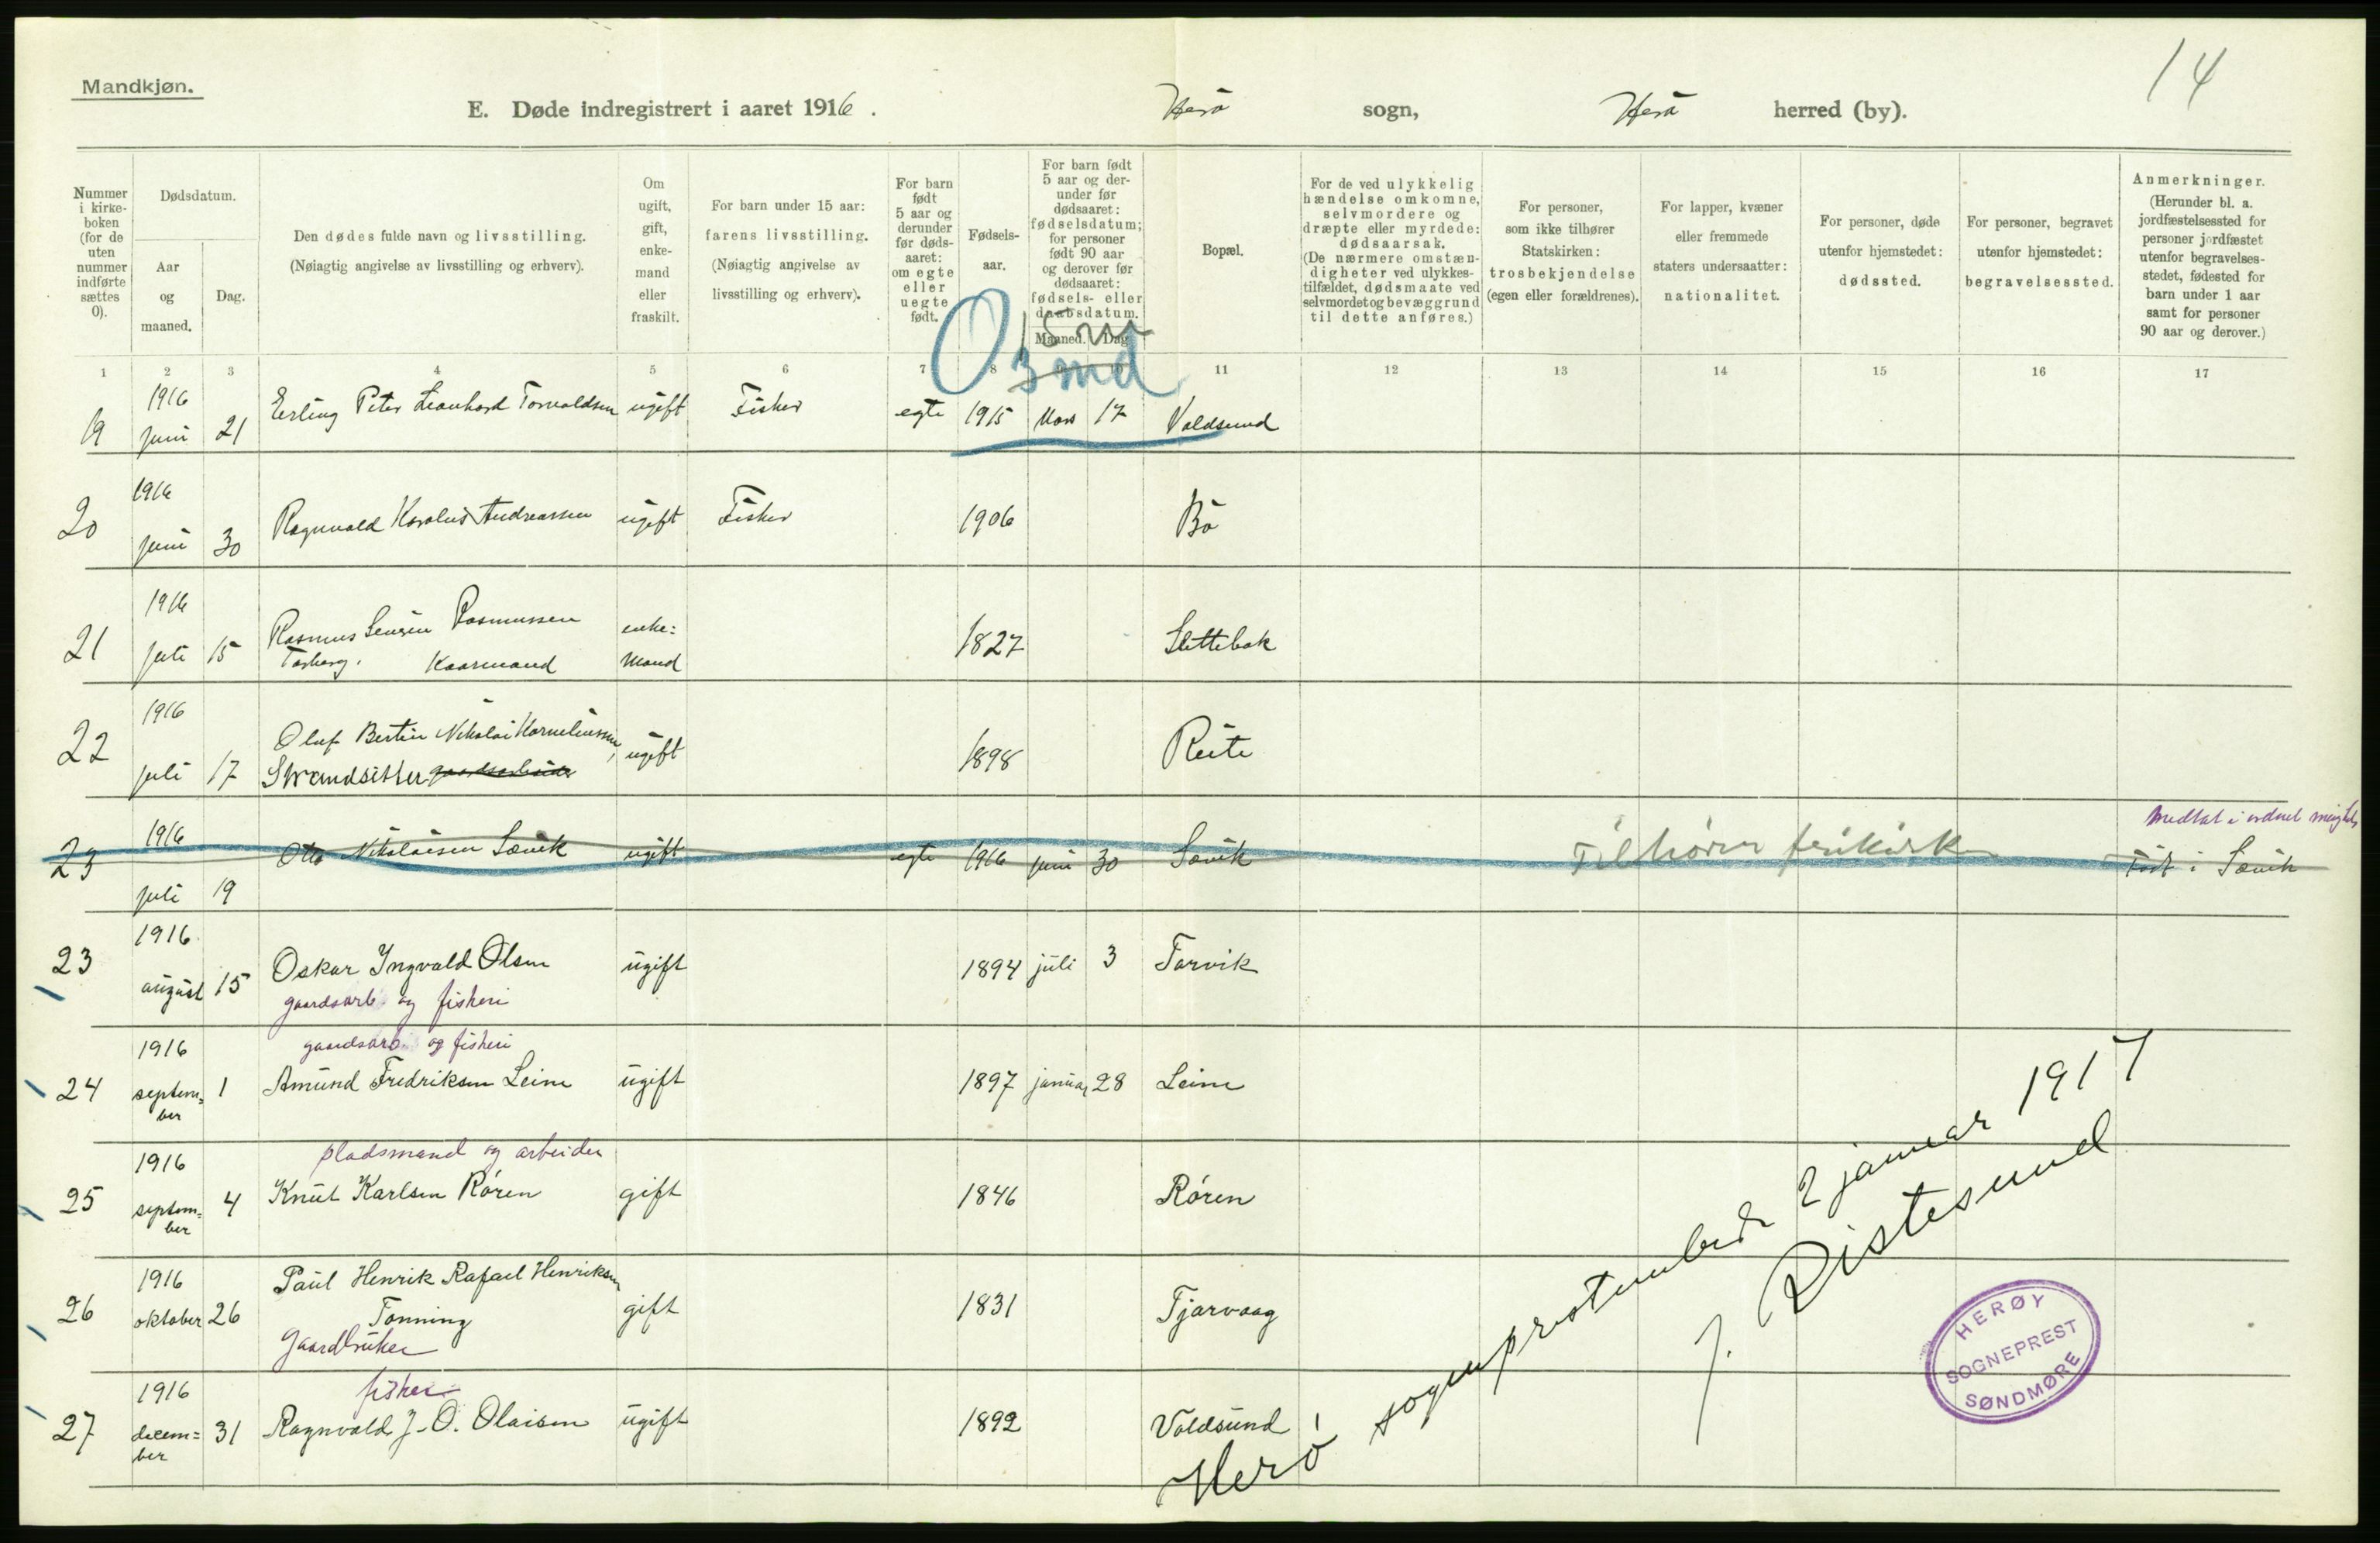 14
Mandkjøn.
E. Døde indregistrert i aaret 1916. Herö sogn, Herö herred (by).
Nummer i kirkeboken (for de uten nummer indførte sættes 0).
Dødsdatum.
Aar og maaned.
Dag.
Den dødes fulde navn og livsstilling.
(Nøiagtig angivelse av livsstilling og erhverv).
Om ugift, gift, enkemand eller fraskilt.
For barn under 15 aar: farens livsstilling.
(Nøiagtig angivelse av livsstilling og erhverv).
For barn født 5 aar og derunder før dødsaaret: om egte eller uegte født.
Fødselsaar.
For barn født 5 aar og derunder før dødsaaret: fødselsdatum; for personer født 90 aar og derover før dødsaaret: fødsels- eller daabsdatum.
Maaned. Dag
Bopæl.
For de ved ulykkelig hændelse omkomne, selvmordere og dræpte eller myrdede: dødsaarsak.
(De nærmere omstændigheter ved ulykkestilfældet, dødsmaate ved selvmordet og bevæggrund til dette anføres.)
For personer, som ikke tilhører Statskirken: trosbekjendelse (egen eller forældrenes).
For lapper, kvæner eller fremmede staters undersaatter: nationalitet.
For personer, døde utenfor hjemstedet: dødssted.
For personer, begravet utenfor hjemstedet: begravelsessted.
Anmerkninger.
(Herunder bl. a. jordfæstelsessted for personer jordfæstet utenfor begravelsesstedet, fødested for barn under 1 aar samt for personer 90 aar og derover.)
1 2 3 4 5 6 7 8 9 10 11 12 13 14 15 16 17
19 1916 juni 21 Erling Peter Leonhard Torvaldsen ugift Fisker egte 1915 Nov 17 Voldsund
20 1916 juni 30 Ragnvald Karolus Andreassen ugift Fisker 1906 Bö
21 1916 juli 15 Rasmus Severin Rasmussen
Tarberg. Kaarmand enke=mand 1827 Slettebak
22 1916 juli 17 Oluf Bertin Nikolai Korneliussen,
Strandsitter gaardsarbeider ugift 1898 Reite
23 1916 juli 19 Otto Nikolaisen Sævik ugift egte 1916 juni 30 Sævik Tilhører frikirk
Født i Sævik
23 1916 august 15 Oskar Ingvald Olsen ugift 1894 juli 3 Tarvik
gaardsarb og fiskeri
gaardsarb og fiskeri
24 1916 septem=ber 1 Amund Fredriksen Leine ugift 1897 januar 28 Leine
pladsmand og arbeider
25 1916 septem=ber 4 Knut Karlsen Rören gift 1846 Rören
26 1916 oktober 26 Paul Henrik Rafael Henriksen
Tonning gift 1831 Tjørvaag
Gaardbruker
fisker
27 1916 decem=ber 31 Ragnvald J. O. Olaisen ugift 1892 Voldsund
Herö sogneprestembede 2 januar 1917
J. Ristesund
HERØY
SOGNEPREST
SØNDMØRE